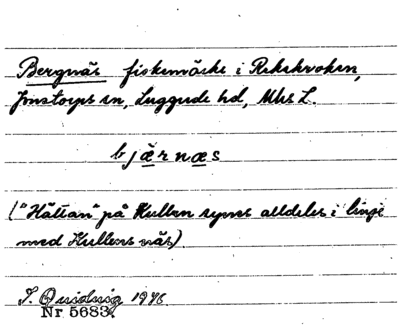 Bergnäs fiskemärke i Rekekroken,
Jonstorps sn, Luggude hd, Mhs L.
bjæ̱rnæ̱s
("Hättan" på Kullen synes alldeles i linje
med Kullens näs).
I. 1946
Nr 5683.